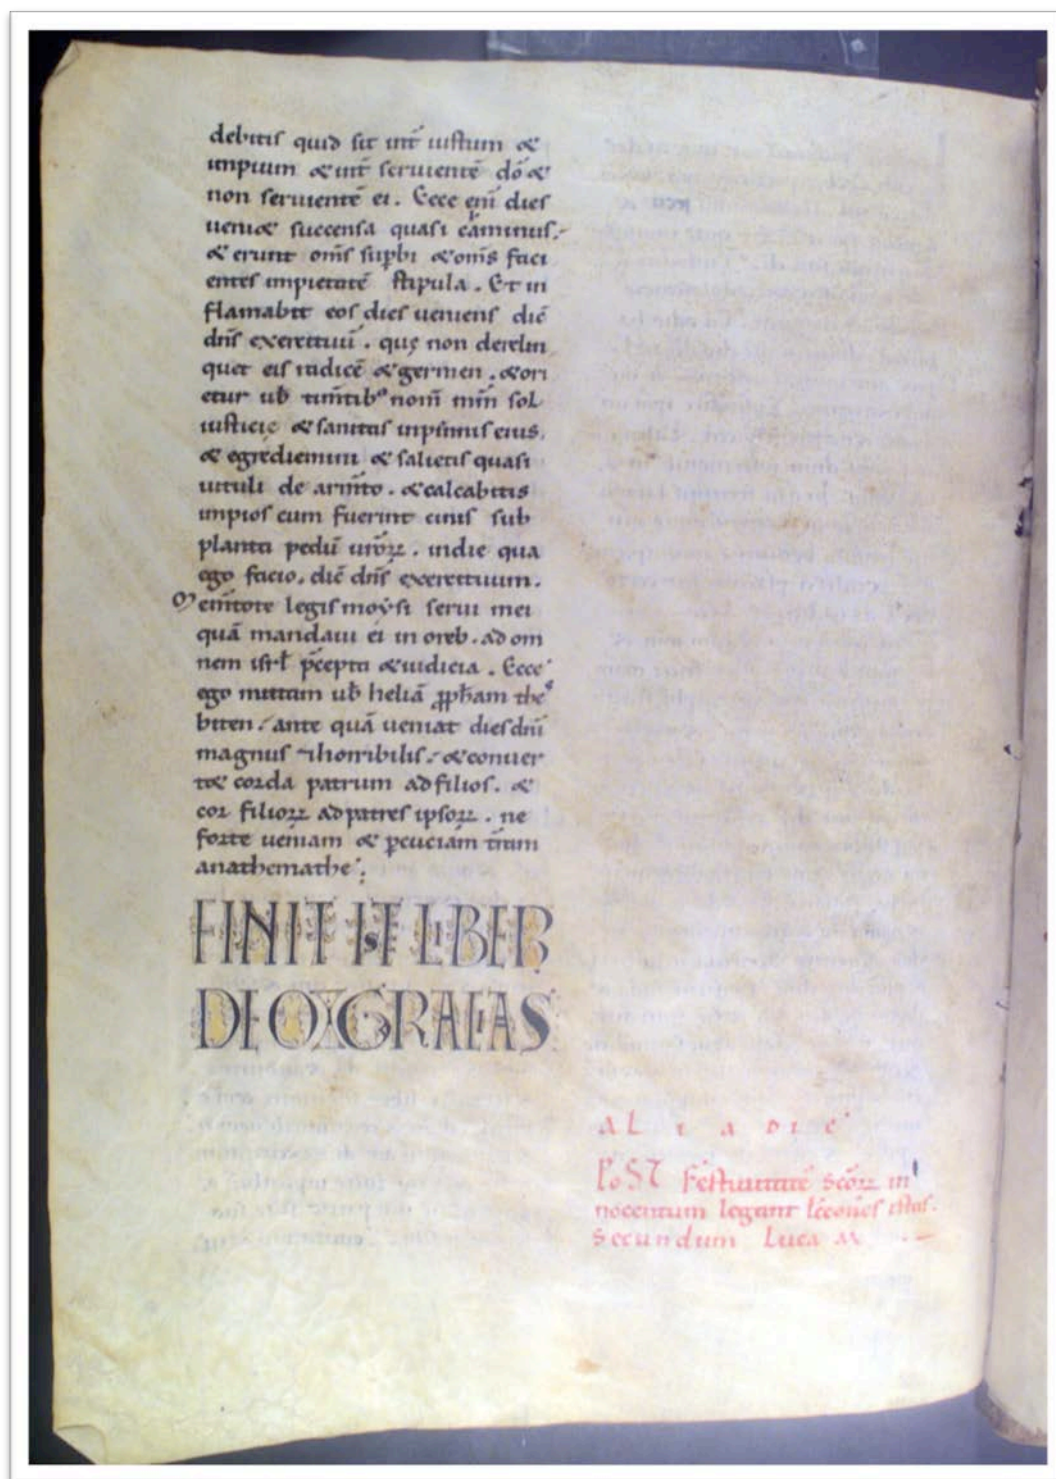 debitis quid sit int̄ iustum &
impium & int̄ seruientē dō &
non seruientē ei. Ecce eni dies
ueni& succensa quasi caminus.
& erunt oms supbi & oms faci
entes impietatē stipula. Et in
flamabit eos dies ueniens dic̄
dns exercituū. quę non derelin
quet eis radicē & germen. & ori
etur ub timtib' nom̄ mm̄ sol
iusticię & sanitas inpinnis eius.
& egrediemini & salietis quasi
uituli de armto. & calcabitis
impios cum fuerint cinis sub
planta pedū urōꝝ. indie qua
ego facio. dic̄ dns exercituum.
Memtote legis moẏsi serui mei
quā mandaui ei in oreb. ad om
nem isrł pcepta & iudicia. Ecce
ego mittam ub heliā ꝓpham thes
biten. ante quā ueniat dies dni
magnus & horribilis. & conuer
t& corda patrum ad filios. &
cor filioꝝ ad patres ipsoꝝ. ne
forte ueniam & pcuciam trām
anathemathe.
FINIT IST LIBER
DEO GRACIAS
aLia die
PoST festiuitatē scōꝝ in
nocentum legant lc̄cones istas.
secundum Lucam